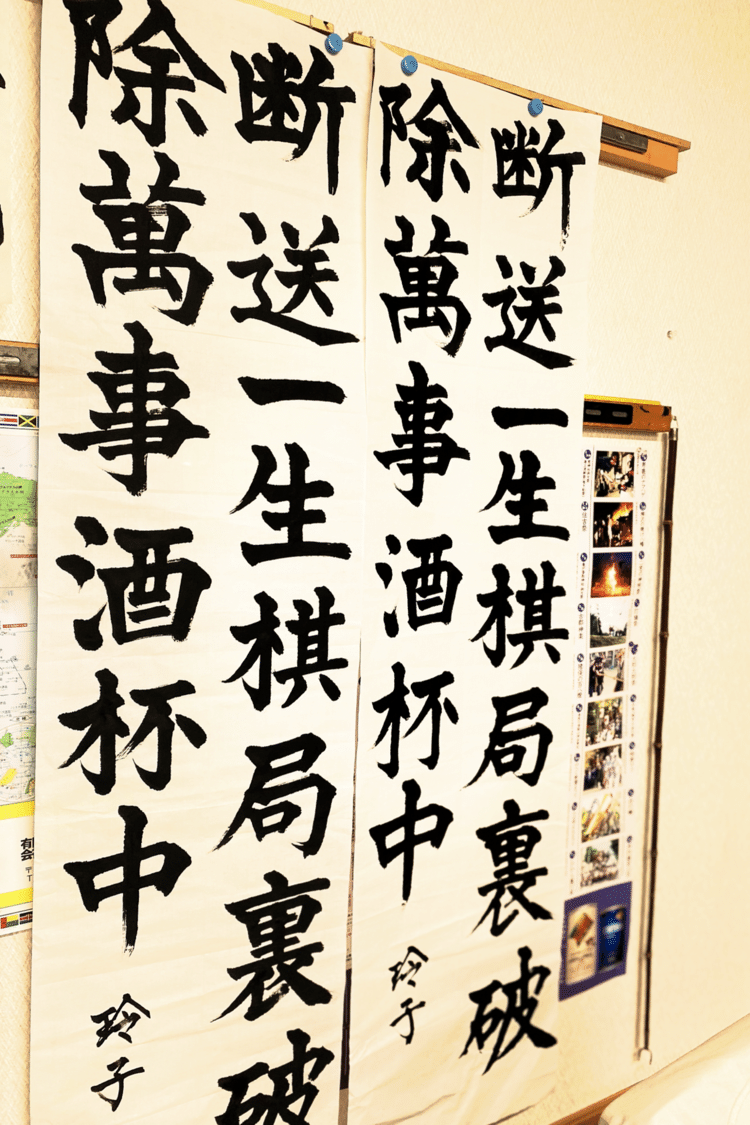 断送一生棋局裏破
除萬事酒杯中
玲子
断送一生棋局裏破
除萬事酒杯中
玲子